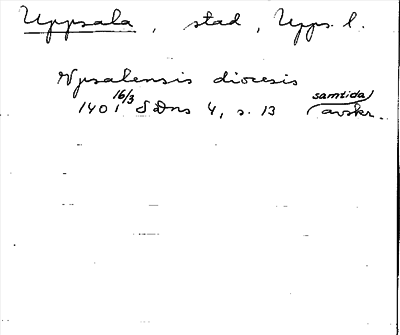 Uppsala, stad, Upps. l.
Vpsalensis diocesis
1401 16/3 SDns 4, s. 13 (samtida avskr.